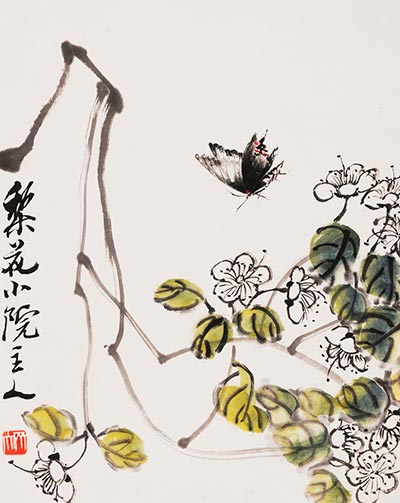 棃花小院主人